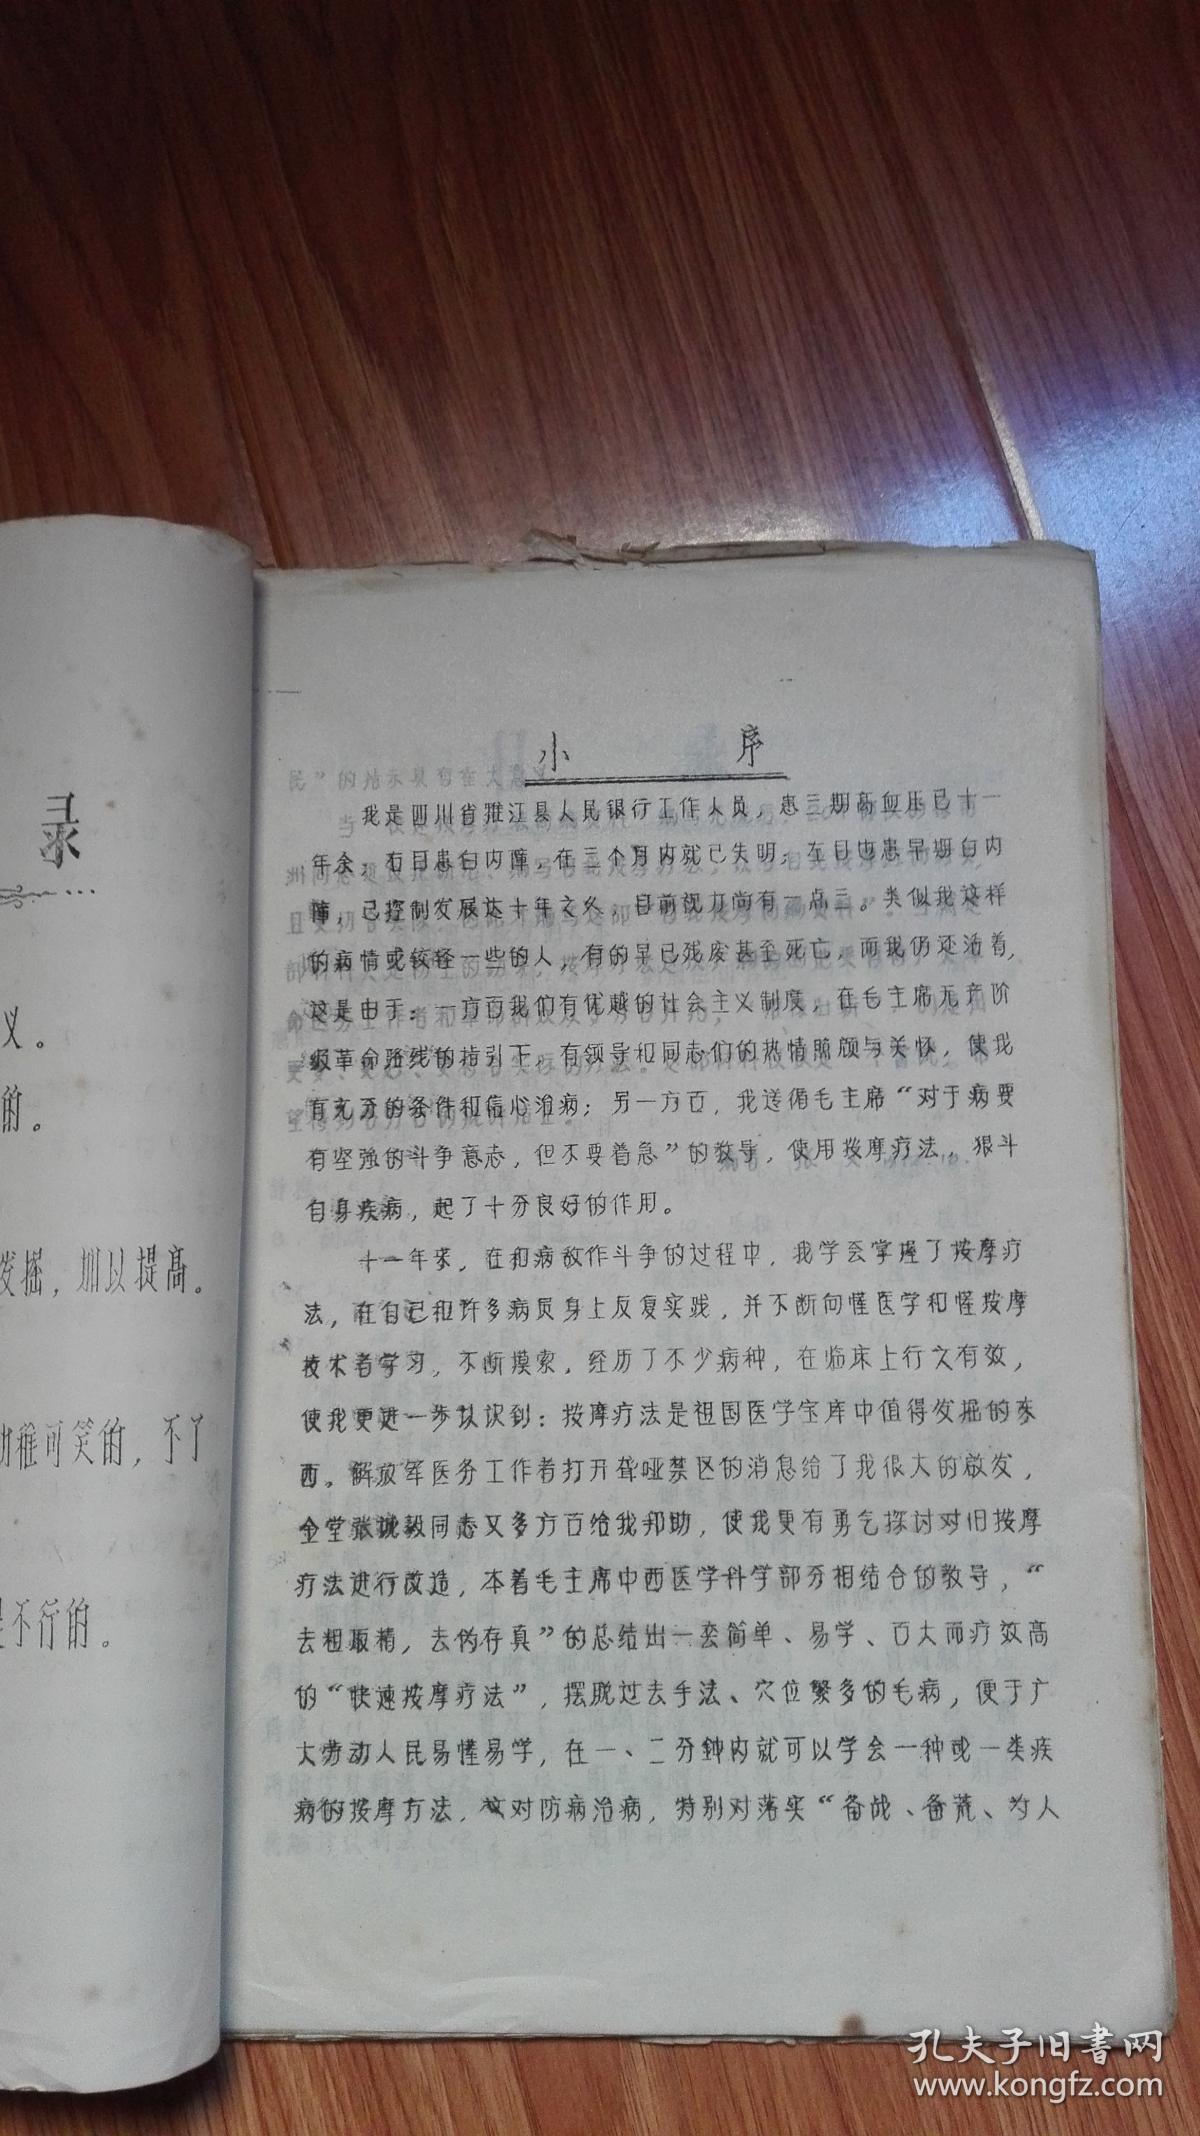 录
义。
的。
发掘，加以提高。
幼稚可笑的，不了
是不行的。
小 序
我是四川省雅江县人民银行工作人员，患三期高血压已十一
年余；右目患白内障，在三个月内就已失明；左目也患早期白内
障，已控制发展达十年之久，目前视力尚有一点三。类似我这样
的病情或较轻一些的人，有的早已残废甚至死亡，而我仍还活着，
这是由于：一方百我们有优越的社会主义制度，在毛主席无产阶
级革命路线的指引下，有领导和同志们的热情照顾与关怀，使我
有充分的条件和信心治病；另一方百，我送循毛主席“对于病要
有坚强的斗争意志，但不要着急”的教导，使用按摩疗法，狠斗
自身疾病，起了十分良好的作用。
十一年来，在和病敌作斗争的过程中，我学会掌握了按摩疗
法，在自己和许多病员身上反复实践，并不断向懂医学和懂按摩
技术者学习，不断摸索，经历了不少病种，在临床上行之有效，
使我更进一步认识到：按摩疗法是祖国医学宝库中值得发掘的东
西。解放军医务工作者打开聋哑禁区的消息给了我很大的啟发，
金堂张诚毅同志又多方百给我邦助，使我更有勇气探讨对旧按摩
疗法进行改造，本着毛主席中西医学科学部分相结合的教导，“
去粗取精，去伪存真”的总结出一套简单、易学、百大而疗效高
的“快速按摩疗法”，摆脱过去手法、穴位繁多的毛病，便于广
大劳动人民易懂易学，在一、二分钟内就可以学会一种或一类疾
病的按摩方法，这对防病治病，特别对落实“备战、备荒、为人
孔夫子旧书网
www.kongfz.com